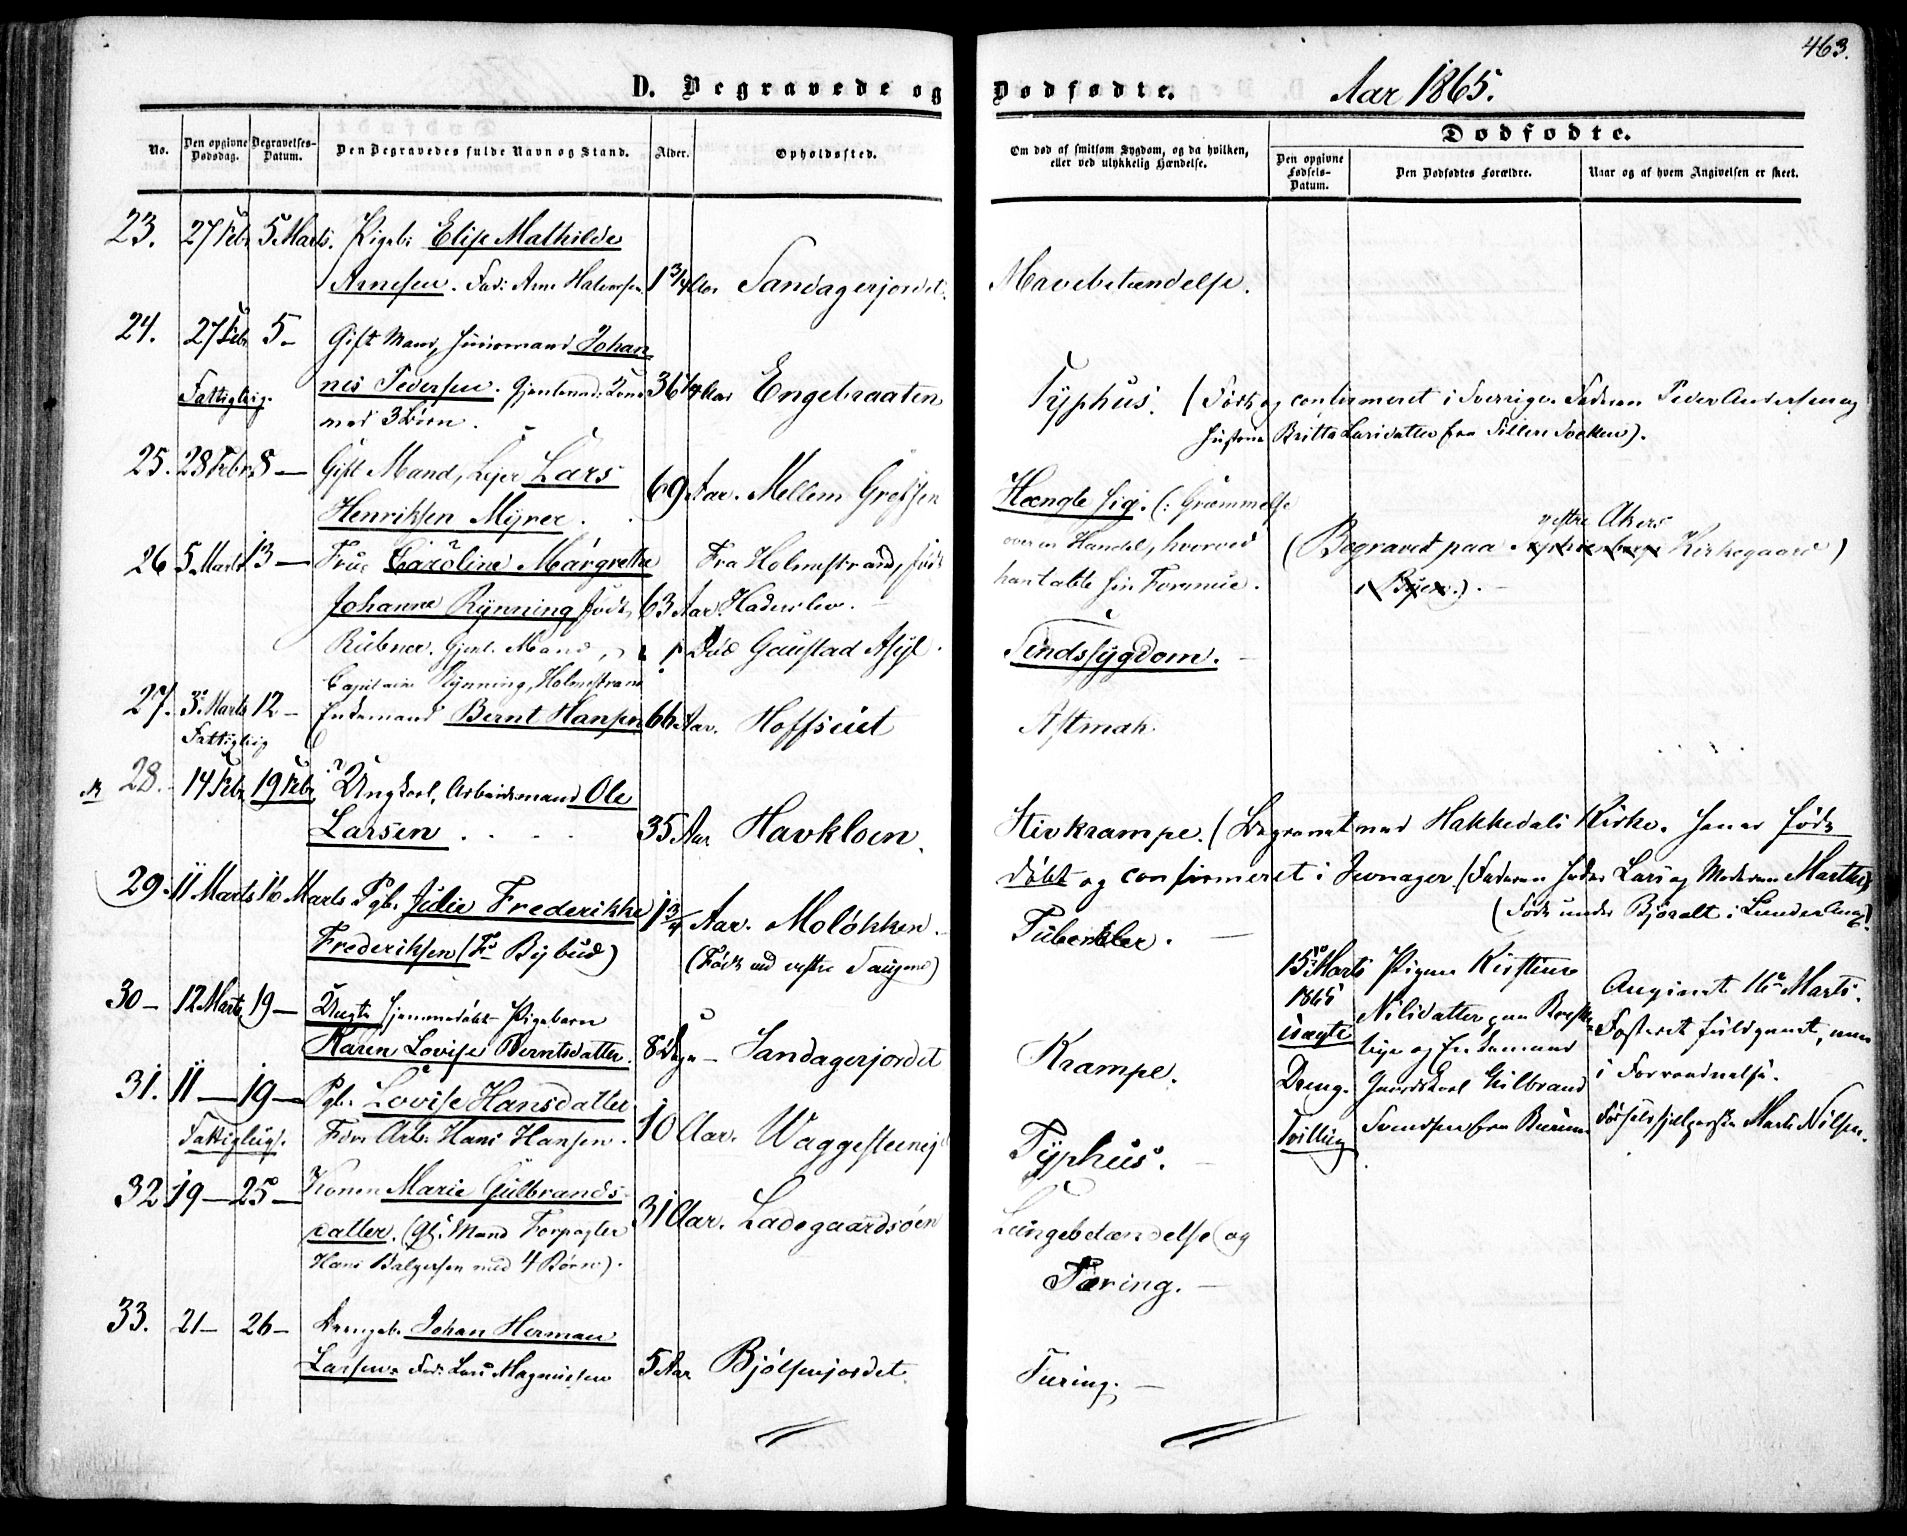 463.
D. Begravede og Dødfødte. Aar 1865.
No. Den opgivne Dødsdag. Begravelses-Datum. Den Begravedes fulde Navn og Stand. Alder. Opholdssted.
Om død af smitsom Sygdom, og da hvilken, eller ved ulykkelig Hændelse.
Dødfødte.
Den opgivne Fødsels-Datum. Den Dødfødtes Forældre. Naar og af hvem Angivelsen er skeet.
23. 27 Febr 5 Marts. Pigeb: Elise Mathilde
Arnesen. Fad: Arne Halvorsen 1 3/4 Aar Sandagerjordet. Mavebetændelse.
24. 27 Febr 5 - Gift Mand, Huusmand Johan-
Fattiglig. nes Pedersen. Gjenlevend: Kone 36 1/4 Aar Engebraaten Typhus. (Født og confirmeret i Sverige. Faderen Peder Andersen og
med 3 Børn. Hustrue Britta Larsdatter fra Sillerr Socken).
25. 28 Febr. 8 — Gift Mand, Lejer Lars
Henriksen Myrer. 69 Aar. Mellem Grefsen Hængte sig. (: Græmmelse
over en Handel, hvorved
han tabte sin Formue.
26 5 Marts 13 — Frue Caroline Margrethe Fra Holmestrand, født
(Begravet paa vestre Akers Kirkegaard)
i Byen.).
Johanne Rynning født 63 Aar. Haderslev.
Rübner. Gjenl. Mand, Død Gaustad Asyl. Sindssygdom.
Capitaine Rynning, Holmestrand
27. 3 Marts 12 - Enkemand Bernt Hansen 66 Aar. Hoffsuet Astmah.
Fattiglig
28. 14 Febr 19 Febr. Ungkarl, Arbeidsmand Ole
Larsen 35 Aar Havkloen. Stivkrampe. (Begravet ved Hakkedals Kirke. Han er født
døbt og confirmeret i Jevnager. (Faderen heder Lars og Moderen Marthe
(Født under Bjøralt i Lunder Anex).
29. 11 Marts 16 Marts Pgb. Julie Frederikke 1 3/4 Aar. Moløkken.
Frederiksen (F: Bybud) (Født ved vestre Saugene) Tuberkler.
30 - 12 Marts 19 — Ungte hjemmedøbt Pigebarn
Karen Lovise Berntsdatter. 8 Dage - Sandagerjordet Krampe.
15 Marts
1865
uægte
Dreng.
Tvilling
Pigen Kirstine
Nilsdatter,
og Enkemand
Gaardskarl Gulbrand
Svendsen fra Bærum
Angivet 16 Marts.
Fosteret fuldgaaet, men
i Forraadnelse.
Fødselshjelperske Marte Nilsen.
31. 11 — 19 — Pgb. Lovise Hansdatter
Fattigligs. Fors Arb. Hans Hansen. 10 Aar. Waggesteenej Typhus.
32 19 — 25 — Konen Marie Gulbrands-
datter. (Gl: Mand Forpagter 31 Aar. Ladegaardsøen Lungebetændelse og
Hans Balgersen med 4 Børn). Tæring.
33. 21 — 26 — Drengeb. Johan Herman
Larsen. Fad: Lars Magnussen 5 Aar Bjølsenjordet. Tæring.